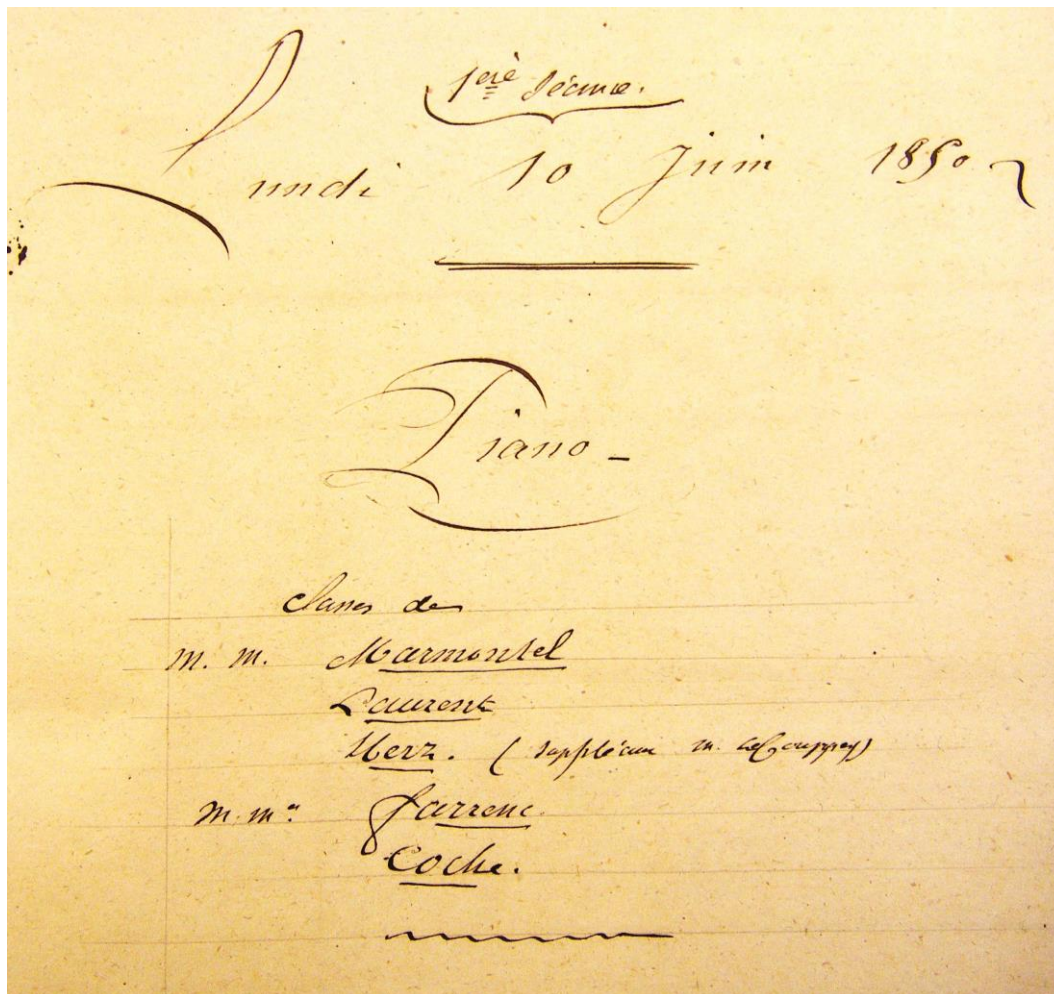 1ere Séance.
Lundi 10 Juin 1850
Piano -
Classes de
M. M. Marmontel
Laurent
Herz. (suppléant M. LeCouppey)
M. Mes Farrenc
Coche.